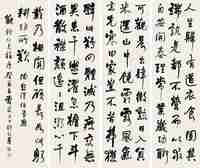 人生歸有道衣食固其
端孰是都不營而以求
自安開春理常業歲功聊
可觀晨出肆微勤日入負
耒還山中饒霜露風氣
亦先寒田家豈不苦弗獲
辭此難四體誠乃疲庶無
異患干盥濯息簷下斗
酒散襟顏遙遙沮溺心千
載乃相關但願長如此躬
耕非所歎